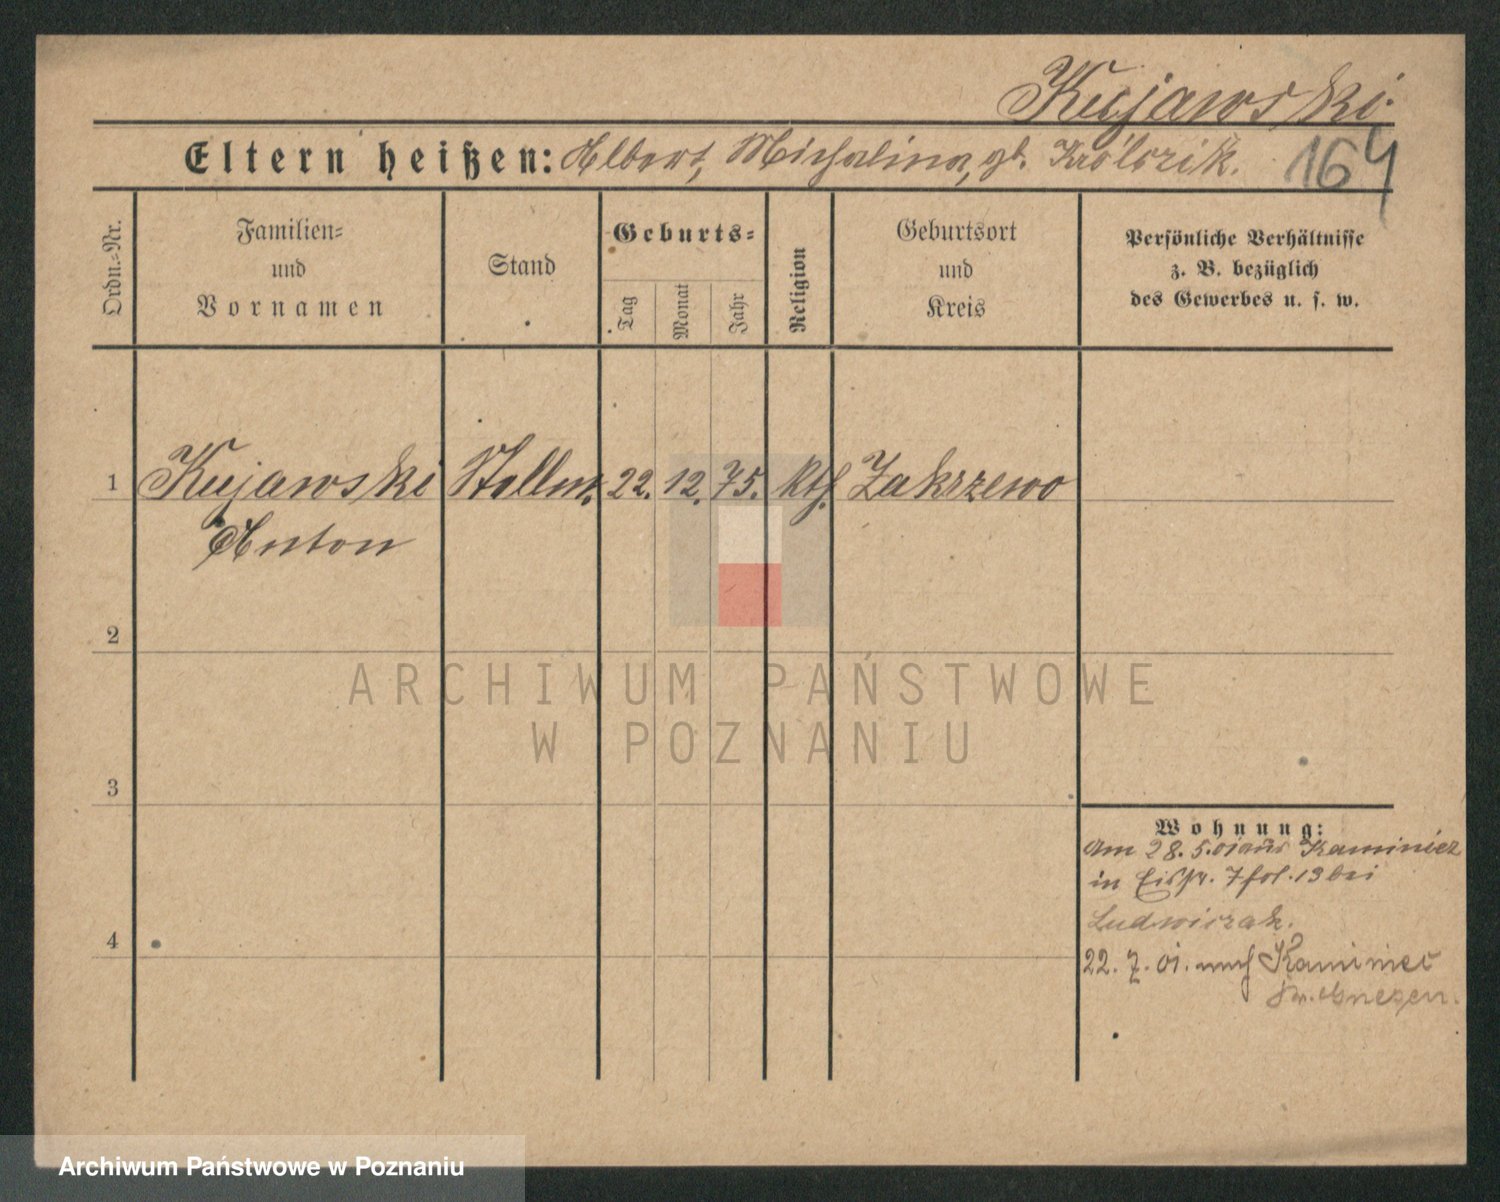 Kujawski.
Eltern heißen: Albert, Michalina, gb. Królczik.
164
Ordn.-Nr.
Familien-
und
Vornamen
Stand
Geburts-
Tag
Monat
Jahr
Religion
Geburtsort
und
Kreis
Persönliche Verhältnisse
z. B. bezüglich
des Gewerbes u. s. w.
1 Kujawski Stellm. 22. 12. 75. kth. Zakrzewo
Anton
2
3
4
Wohnung:
Am 28. 5. 01 aus Kaminiez
in 7 fol. 13 bei
Ludwiczak.
22. 7. 01. nach Kaminiec
Kr. Gnesen.
ARCHIWUM PAŃSTWOWE
W POZNANIU
Archiwum Państwowe w Poznaniu